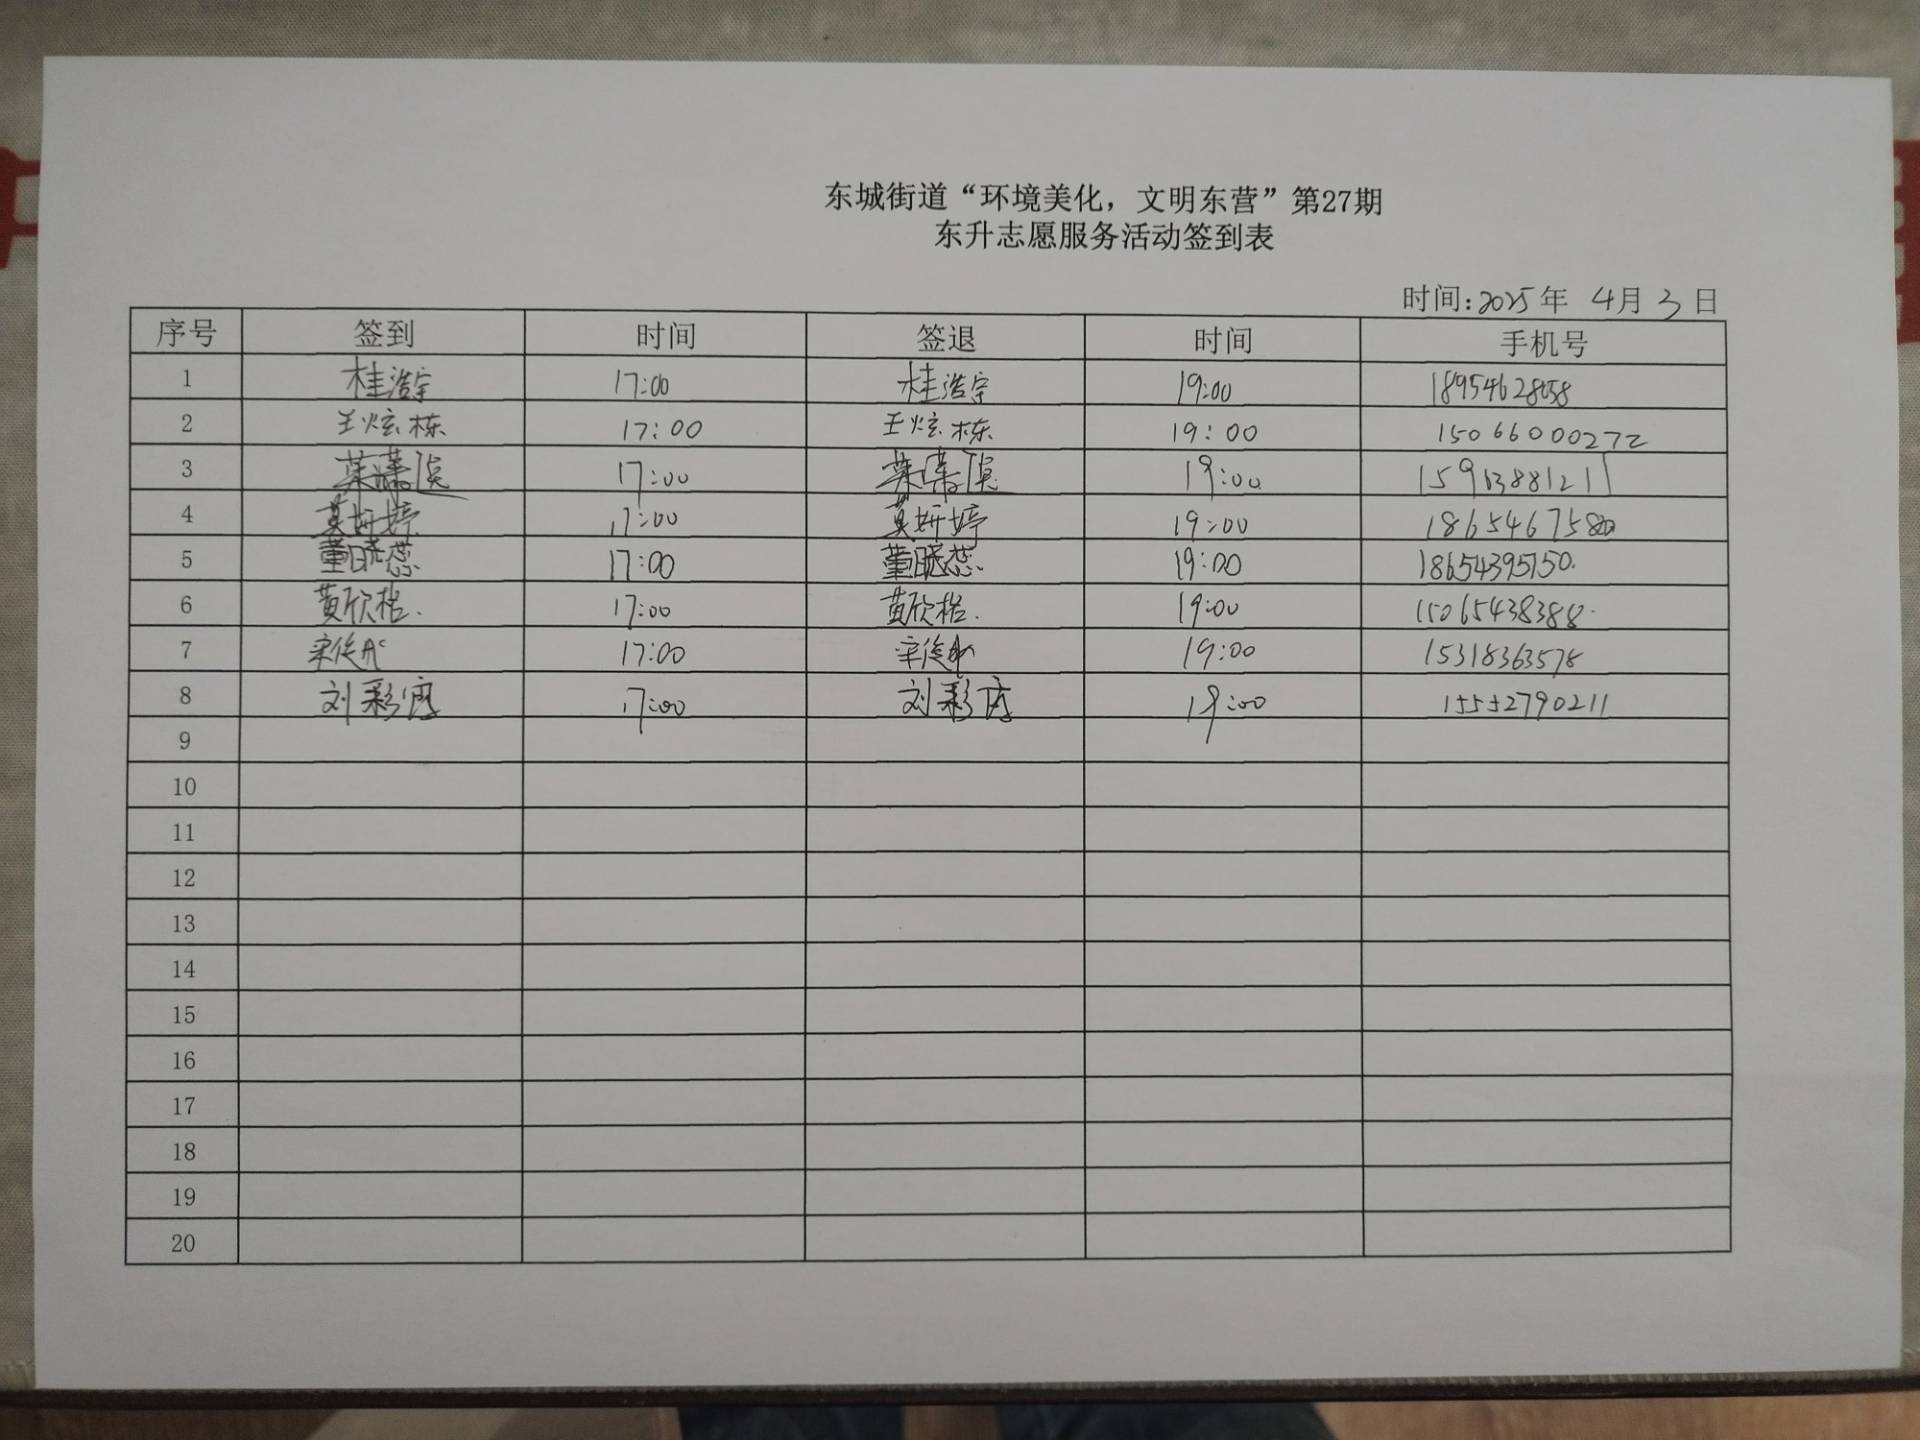 东城街道“环境美化，文明东营”第27期
东升志愿服务活动签到表
时间:2025年 4月 3 日
序号 签到 时间 签退 时间 手机号
1 桂浩宇 17:00 桂浩宇 19:00 18954628058
2 王炫栋 17:00 王炫栋 19:00 15066000272
3 17:00 19:00 15963881211
4 莫妍婷 17:00 莫妍婷 19:00
5 董晓蕊 17:00 董晓蕊 19:00 18654395150.
6 黄欣格. 17:00 黄欣格. 19:00 15065438388.
7 17:00 19:00 15318363578
8 刘彩 17:00 刘彩 19:00 15552790211
9
10
11
12
13
14
15
16
17
18
19
20